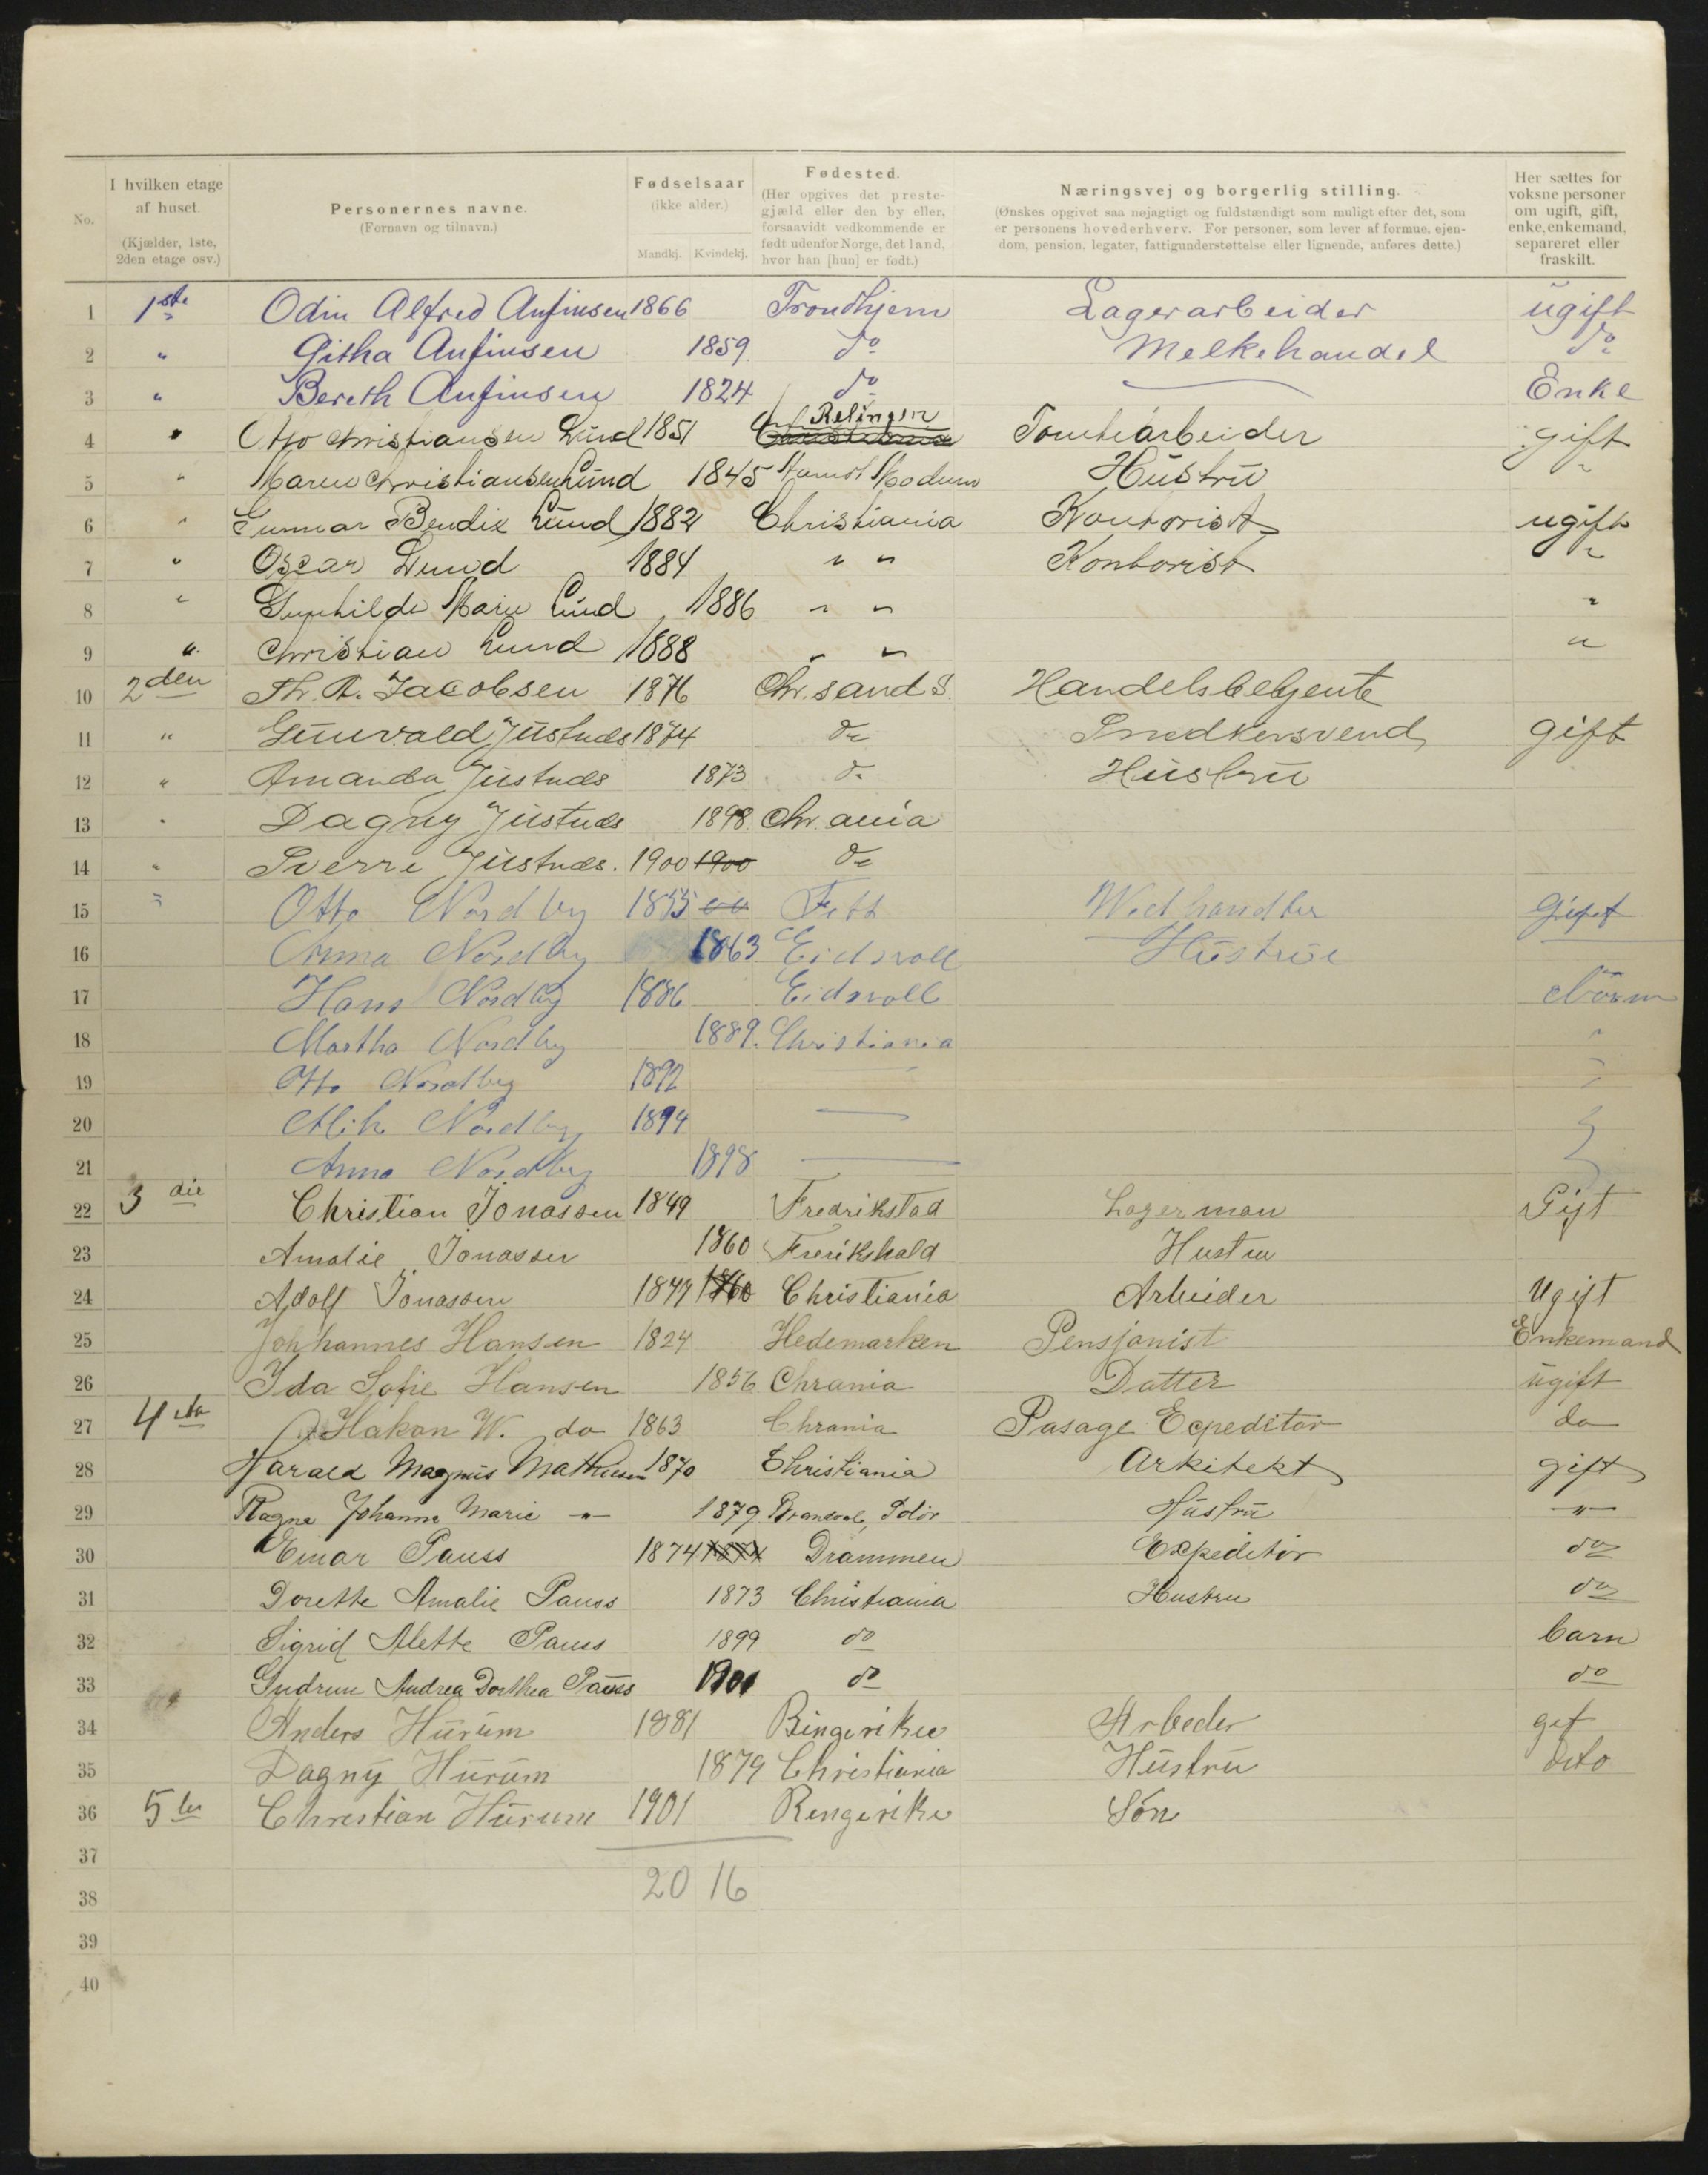 No.
I hvilken etage af huset. (Kjælder, 1ste, 2den etage osv.)
Personernes navne. (Fornavn og tilnavn.)
Fødselsaar (ikke alder.) Mandkj. Kvindekj.
Fødested. (Her opgives det prestegjæld eller den by eller, forsaavidt vedkommende er født udenfor Norge, det land, hvor han [hun] er født.)
Næringsvej og borgerlig stilling. (Ønskes opgivet saa nøjagtigt og fuldstændigt som muligt efter det, som er personens hovederhverv. For personer, som lever af formue, ejendom, pension, legater, fattigunderstøttelse eller lignende, anføres dette.)
Her sættes for voksne personer om ugift, gift, enke, enkemand, separeret eller fraskilt.
1 1ste Odin Alfred Anfinsen 1866 Trondhjem Lagerarbeider ugift
2 " Githa Anfinsen 1859 do Melkehandel do
3 " Bereth Anfinsen 1824 do — Enke
4 " Otto Christiansen Lund 1851 Tomtearbeider gift
5 " Maren Christiansen Lund 1845 Modum Hustru "
6 " Gunnar Bendix Lund 1882 Christiania Kontorist ugift
7 " Oscar Lund 1884 " " Kontorist "
8 " Gunhilde Marie Lund 1886 " " "
9 " Christian Lund 1888 " " "
10 2den Th. A. Jacobsen 1876 Chr.sand S. Handelsbetjente
11 " Gunvald Justnæs 1874 do Snedkersvend gift
12 " Amanda Justnæs 1873 do Hustru
13 " Dagny Justnæs 1898 Chr.ania
14 " Sverre Justnæs. 1900 1900 do
15 " Otto Nordby 1855 Fett Wedhandler Gift
16 Anna Nordby 1863 Eidsvoll Hustrue
17 Hans Nordby 1886 Eidsvoll Börn
18 Martha Nordby 1889. Christiania "
19 Otto Nordby 1892 — "
20 Nordby 1894 —
21 Anna Nordby 1898 —
22 3die Christian Jonassen 1849 Fredrikstad Lagerman Gift
23 Amalie Jonassen 1860 Frerikshald Hustru
24 Adolf Jonassen 1877 1860 Christiania Arbeider Ugift
25 Johhannes Hansen 1824 Hedemarken Pensjonist Enkemand
26 Ida Sofie Hansen 1856 Chrania Datter ugift
27 4de Hakon W. do 1863 Chrania Pasage Ecpeditør do
28 Harald Magnus Mathiesen 1870 Christiania Arkitekt gift
29 Ragna Johanne Marie —"— 1879 Brandval, Solør Hustru —"—
30 Einar Pauss 1874 1874 Drammen Expeditør do
31 Dorette Amalie Pauss 1873 Christiania Hustru do
32 Sigrid Alette Pauss 1899 do barn
33 Gudrun Andrea Dorthea Pauss 1901 do do
34 Anders Hurum 1881 Ringerike Arbeder gif
35 Dagny Hurum 1879 Christiania Hustru dito
36 5te Christian Hurum 1901 Ringerike Sön
37
38 20 16
39
40